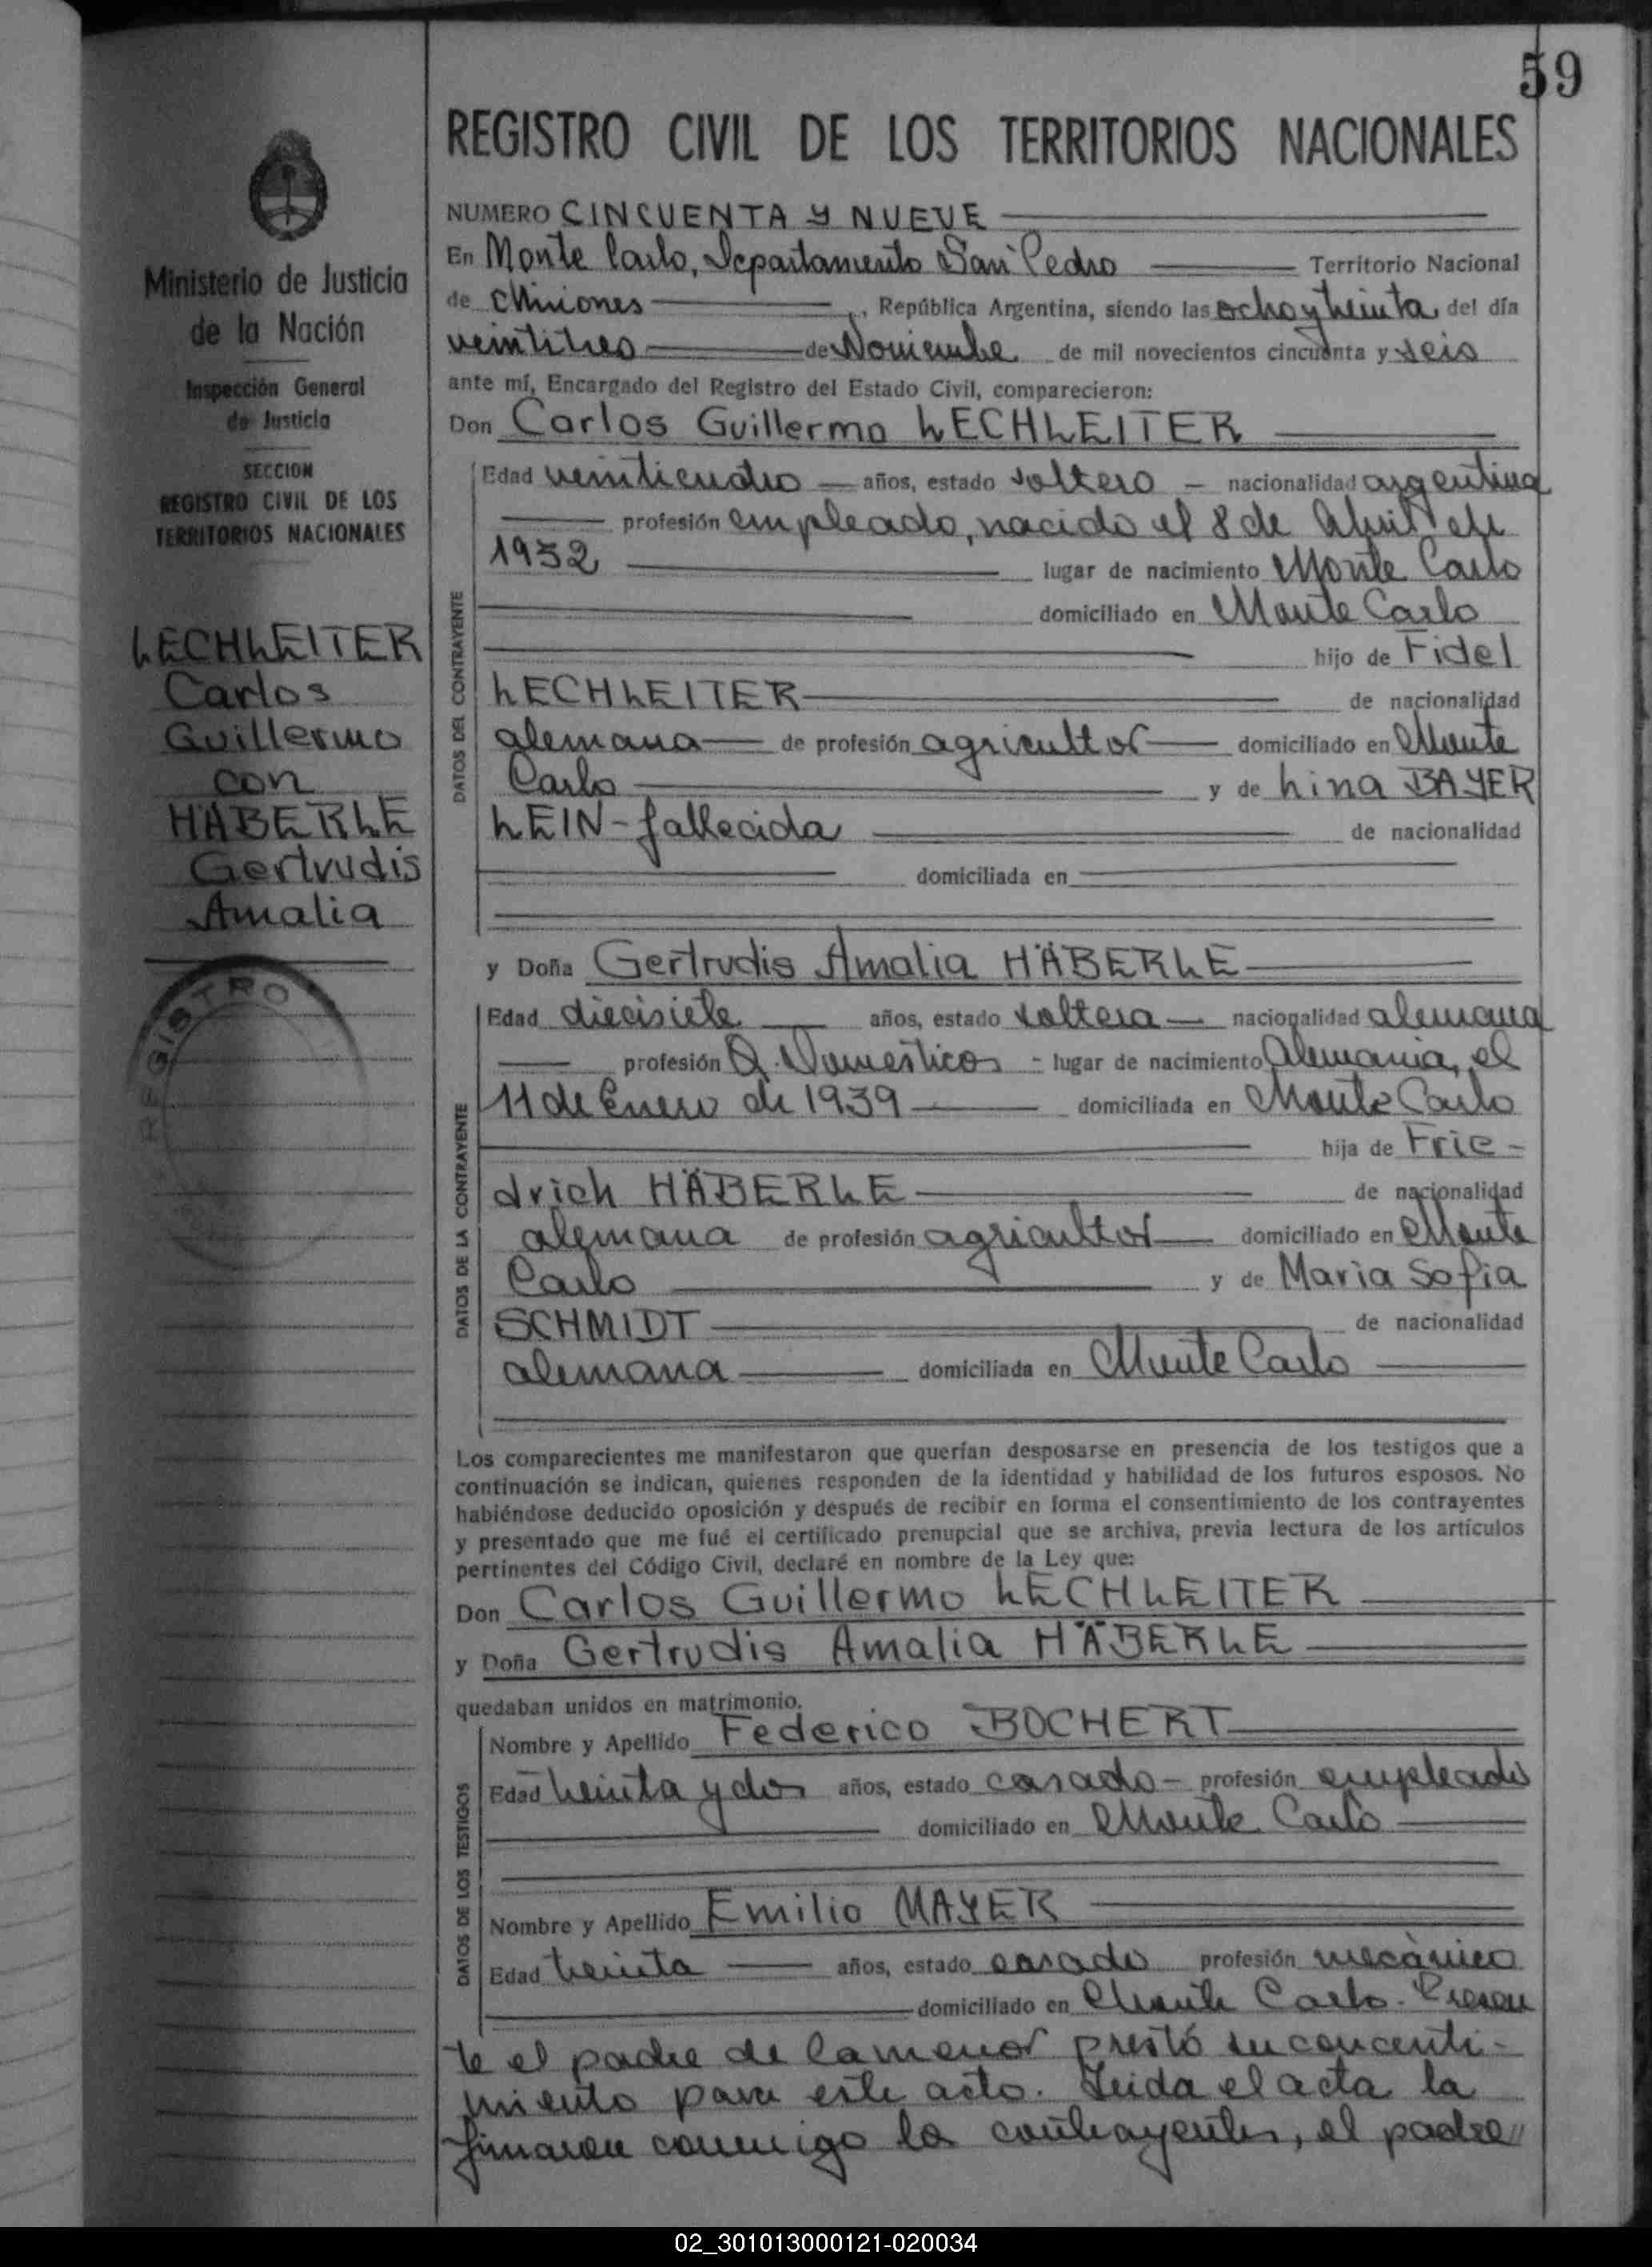 59
REGISTRO CIVIL DE LOS TERRITORIOS NACIONALES
Ministerio de Justicia
de la Nación
Inspección General
de Justicia
SECCION
REGISTRO CIVIL DE LOS
TERRITORIOS NACIONALES
LECHLEITER
Carlos
Guillermo
con
HÄBERLE
Gertrudis
Amalia
REGISTRO
NUMERO CINCUENTA Y NUEVE
En Monte Carlo, Departamento San Pedro Territorio Nacional
de Misiones, República Argentina, siendo las ocho y treinta del día
veintitres de Noviembre de mil novecientos cincuenta y seis
ante mí, Encargado del Registro del Estado Civil, comparecieron:
Don Carlos Guillermo LECHLEITER
DATOS DEL CONTRAYENTE
Edad veinticuatro años, estado soltero - nacionalidad argentina
profesión empleado, nacido el 8 de Abril de
1932 lugar de nacimiento Monte Carlo
domiciliado en Monte Carlo
hijo de Fidel
LECHLEITER de nacionalidad
alemana de profesión agricultor domiciliado en Monte
Carlo y de Lina BAYER
LEIN - fallecida de nacionalidad
domiciliada en
y Doña Gertrudis Amalia HÄBERLE
DATOS DE LA CONTRAYENTE
Edad diecisiete años, estado soltera nacionalidad alemana
profesión Q. Domesticos - lugar de nacimiento Alemania, el
11 de Enero de 1939 domiciliada en Monte Carlo
hija de Frie-
drich HÄBERLE de nacionalidad
alemana de profesión agricultor domiciliado en Monte
Carlo y de Maria Sofia
SCHMIDT de nacionalidad
alemana domiciliada en Monte Carlo
Los comparecientes me manifestaron que querían desposarse en presencia de los testigos que a
continuación se indican, quienes responden de la identidad y habilidad de los futuros esposos. No
habiéndose deducido oposición y después de recibir en forma el consentimiento de los contrayentes
y presentado que me fué el certificado prenupcial que se archiva, previa lectura de los artículos
pertinentes del Código Civil, declaré en nombre de la Ley que:
Don Carlos Guillermo LECHLEITER
y Doña Gertrudis Amalia HÄBERLE
quedaban unidos en matrimonio.
DATOS DE LOS TESTIGOS
Nombre y Apellido Federico BOCHERT
Edad treinta y dos años, estado casado - profesión empleado
domiciliado en Monte Carlo
Nombre y Apellido Emilio MAYER
Edad treinta años, estado casado profesión mecánico
domiciliado en Monte Carlo. Presen
te el padre de la menor prestó su concenti-
miento para este acto. Leida el acta la
firmaron conmigo los contrayentes, el padre
02_301013000121-020034